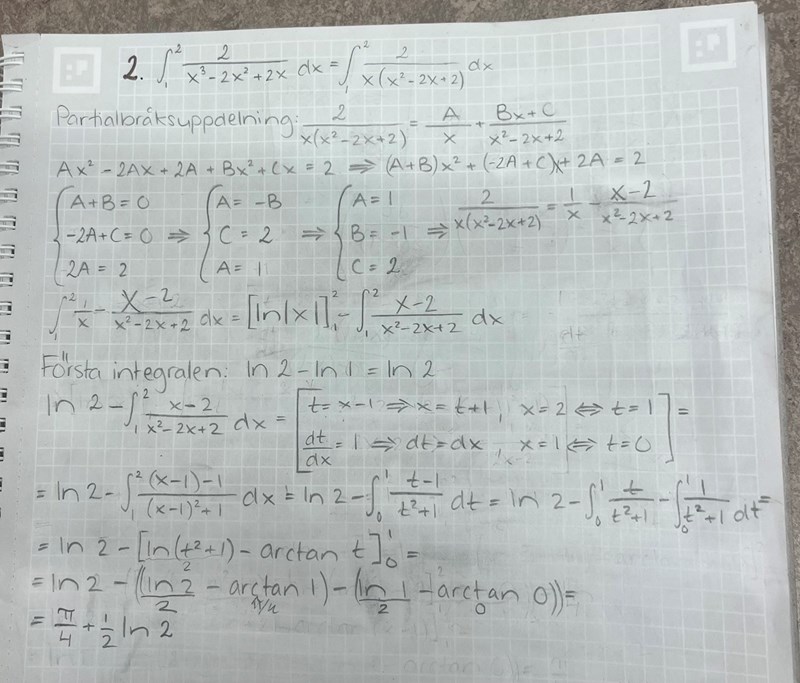 2. ∫₁² 2/(x³ - 2x² + 2x) dx = ∫₁² 2/(x(x² - 2x + 2)) dx
Partialbråksuppdelning: 2/(x(x² - 2x + 2)) = A/x + (Bx + C)/(x² - 2x + 2)
Ax² - 2Ax + 2A + Bx² + Cx = 2 ⇒ (A+B)x² + (-2A + C)x + 2A = 2
{ A + B = 0 { A = -B { A = 1
{ -2A + C = 0 ⇒ { C = 2 ⇒ { B = -1 ⇒ 2/(x(x² - 2x + 2)) = 1/x - (x - 2)/(x² - 2x + 2)
{ 2A = 2 { A = 1 { C = 2
∫₁² 1/x - (x - 2)/(x² - 2x + 2) dx = [ln|x|]₁² - ∫₁² (x - 2)/(x² - 2x + 2) dx
Första integralen: ln 2 - ln 1 = ln 2
ln 2 - ∫₁² (x - 2)/(x² - 2x + 2) dx = [ t = x - 1 ⇒ x = t + 1, x = 2 ⇔ t = 1
dt/dx = 1 ⇒ dt = dx, x = 1 ⇔ t = 0 ] =
= ln 2 - ∫₁² ((x - 1) - 1)/((x - 1)² + 1) dx = ln 2 - ∫₀¹ (t - 1)/(t² + 1) dt = ln 2 - ∫₀¹ t/(t² + 1) - ∫₀¹ 1/(t² + 1) dt =
= ln 2 - [ln(t² + 1)/2 - arctan t]₀¹ =
= ln 2 - ((ln 2/2 - arctan 1) - (ln 1/2 - arctan 0)) =
π/4 0
= π/4 + 1/2 ln 2